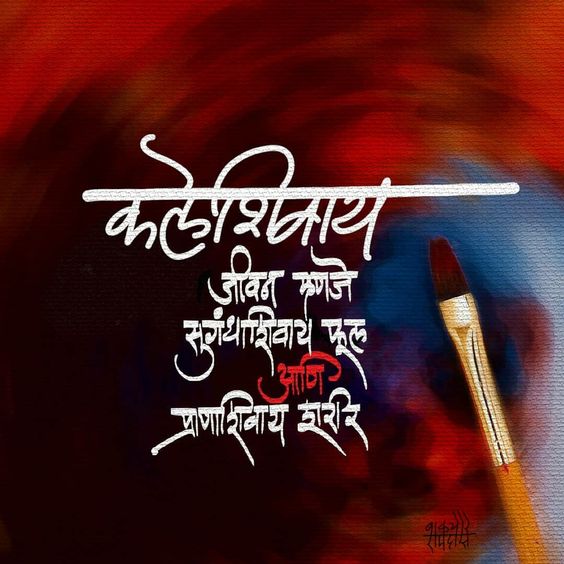 कलेशिवाय
जीवन म्हणजे
सुगंधाशिवाय फूल
आणि
प्राणाशिवाय शरीर